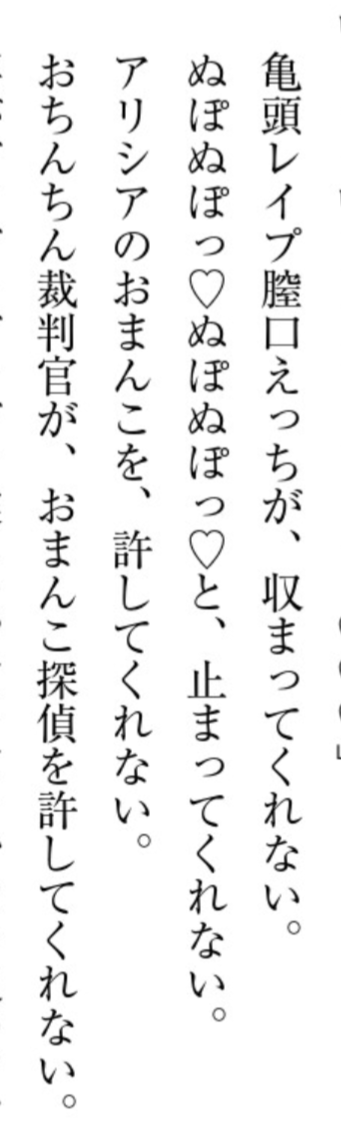 亀頭レイプ膣口えっちが、収まってくれない。
ぬぽぬぽっ♡ぬぽぬぽっ♡と、止まってくれない。
アリシアのおまんこを、許してくれない。
おちんちん裁判官が、おまんこ探偵を許してくれない。